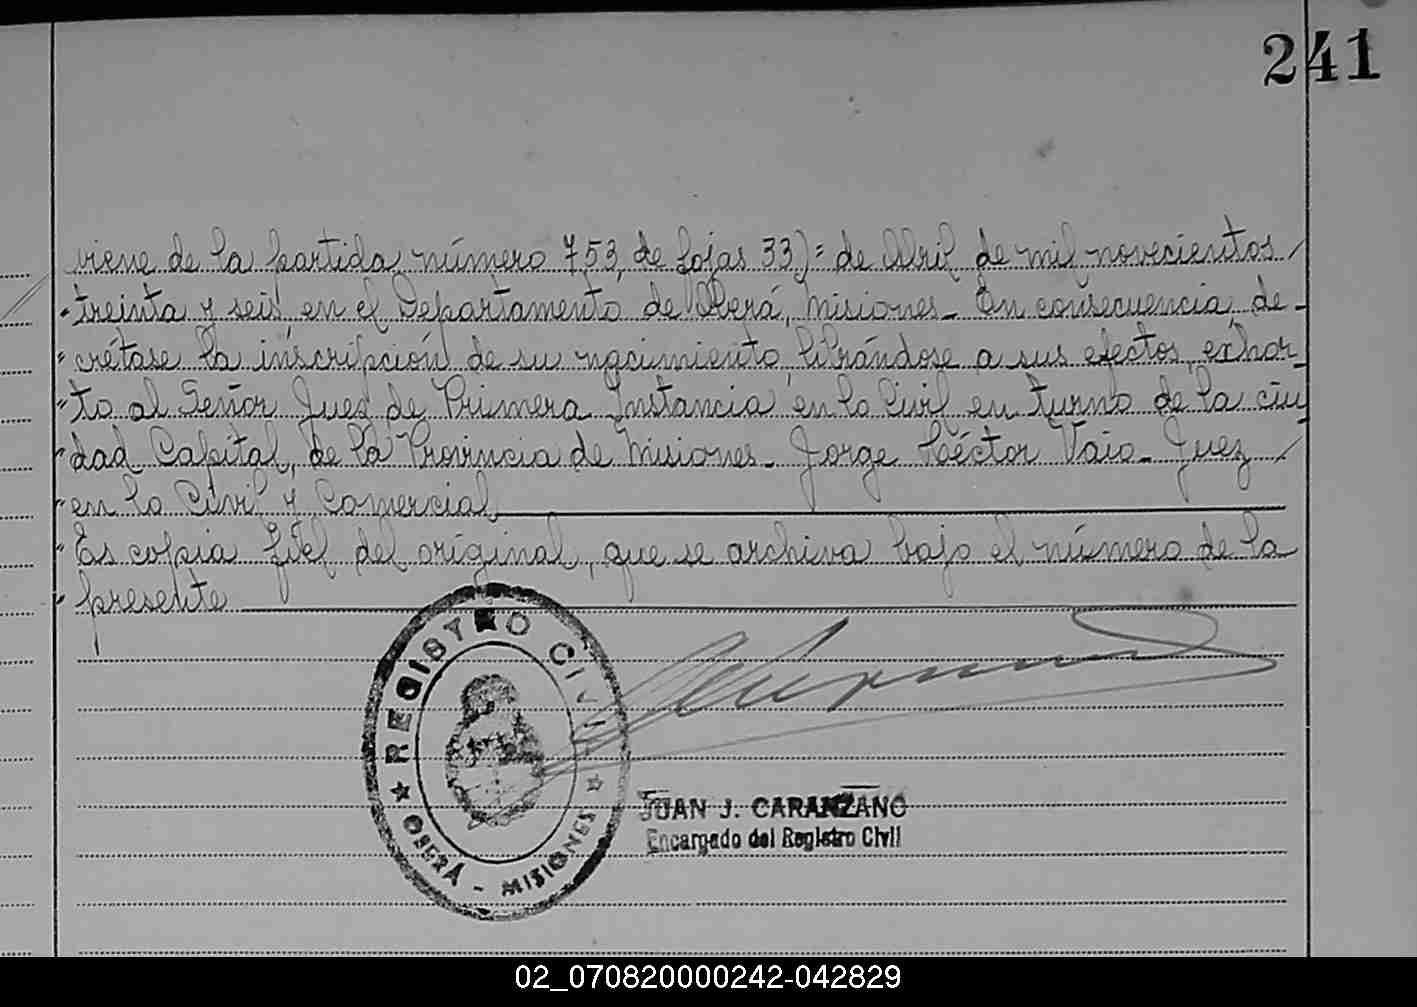 241
viene de la partida número 753, de fojas 33)= de Abril de mil novecientos
treinta y seis en el Departamento de Oberá, Misiones_ En consecuencia, de-
crétase la inscripción de su nacimiento, librándose a sus efectos, exhor_
to al Señor Juez de Primera Instancia en lo Civil en turno de la ciu
dad Capital, de la Provincia de Misiones_ Jorge Héctor Vaio_ Juez
en lo Civil y Comercial
Es copia fiel del original, que se archiva bajo el número de la
presente
REGISTRO CIVIL
OBERÁ - MISIONES
JUAN J. CARANZANO
Encargado del Registro Civil
02_070820000242-042829